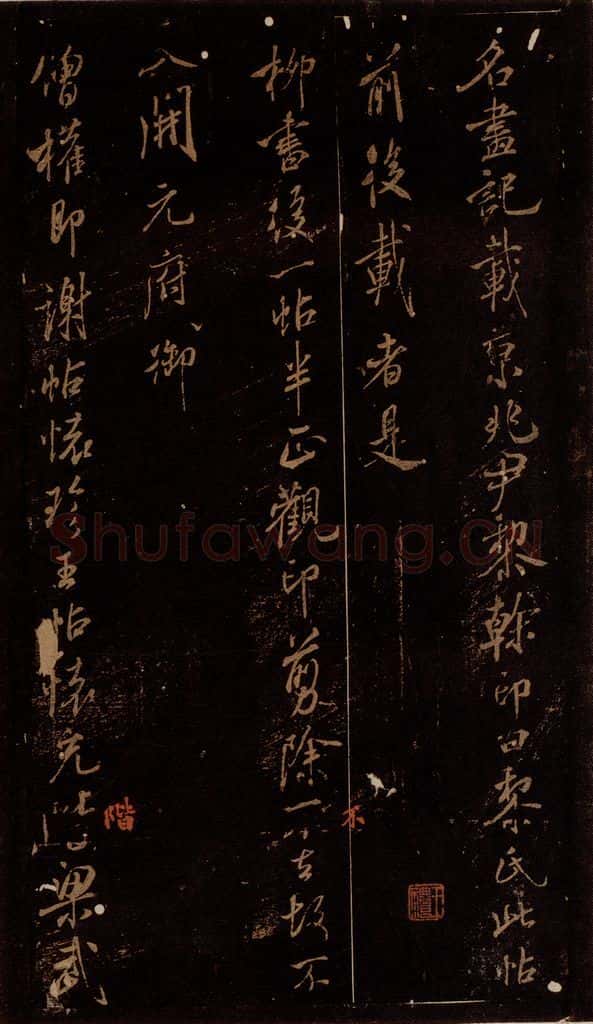 名畫記載京兆尹黎幹印曰黎氏此帖
前後載者是
柳書後一帖半正觀印剪除一古故不
入開元府御
僧權即謝帖懷珍王帖懷充此梁武
Shufawang.Cn
階